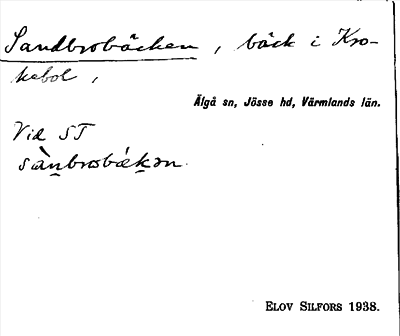 Sandbrobäcken, bäck i Kro-
kebol,
Älgå sn, Jösse hd, Värmlands län.
Vid ST
sàn̲brobák̲ən.
ELOV SILFORS 1938.